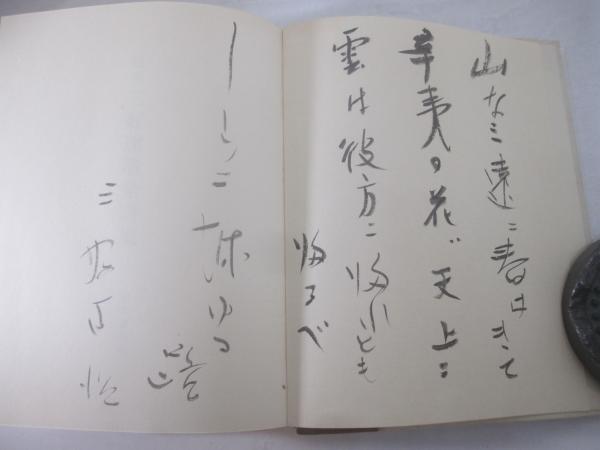 山なミ遠ニ春はきて
辛夷の花ハ天上ニ
雲は彼方ニ帰れども
帰るべ
しらニ越ゆる
路
三好達治